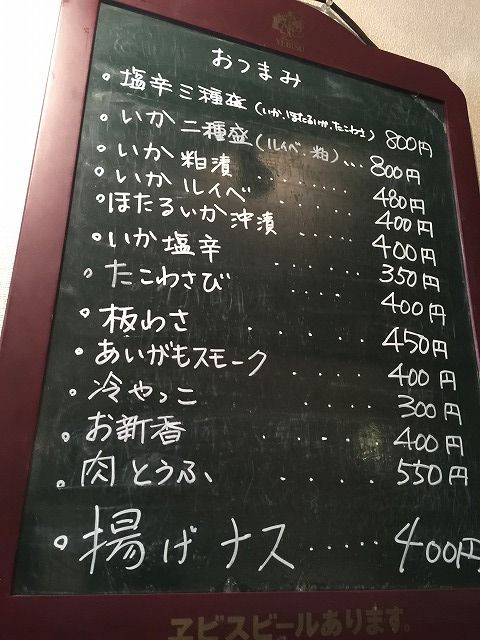 YEBISU
おつまみ
・塩辛三種盛(いか.ほたるいか.たこわさ) 800円
・いか二種盛(ルイベ・粕)... 800円
・いか粕漬 ....... 480円
・いかルイベ ..... 400円
ほたるいか沖漬 .... 400円
・いか塩辛 ...... 350円
・たこわさび .... 400円
・板わさ ...... 450円
・あいがもスモーク .... 400円
・冷やっこ ..... 300円
・お新香 ..... 400円
・肉とうふ ..... 550円
・揚げナス ..... 400円
ヱビスビールあります。